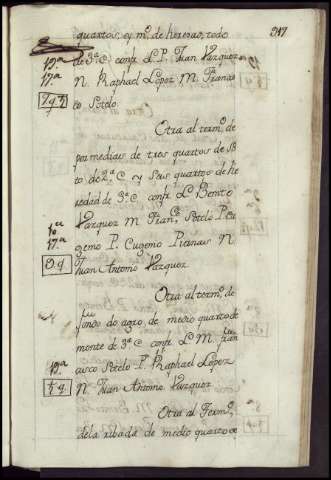 quartos, y m.º de herenas, todo
347
de 3.ª C. confr. L. P. Juan Vazquez
19.ª
17.ª
N. Raphael Lopez M. Franⁿ
co Sotelo
Otra al term.º de
por medias de tres quartos de
to de 2.ª C. y Seis quartos de he
redad de 3.ª C. confr. L. Benito
Vazquez M. Fran.co Sotelo P. Eu
17.ª
genio P. Eugenio N.
Juan Antonio Vazquez
Otra al term.º de
fondo do agro de medio quarto de
monte de 3.ª C. conf. L. M. fran
cisco Sotelo P. Raphael Lopez
N. Juan Antonio Vazquez
Otra al Term.º
de la ribada de medio quarto de